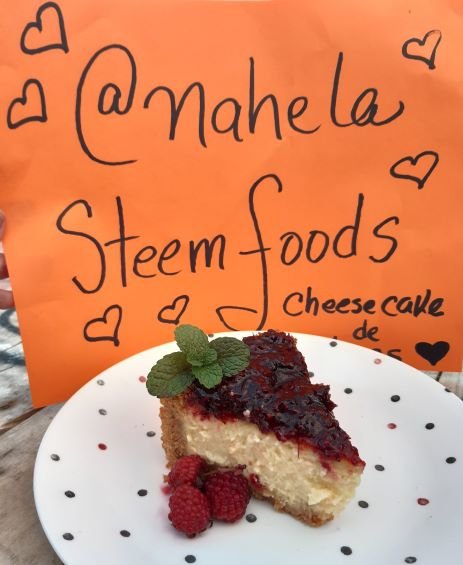 @nahela
Steem foods
Cheesecake
de